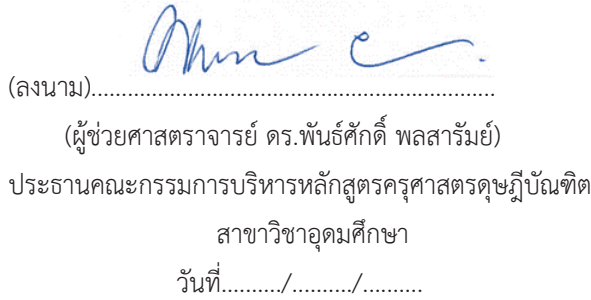 (ลงนาม)....................................................................
(ผู้ช่วยศาสตราจารย์ ดร.พันธ์ศักดิ์ พลสารัมย์)
ประธานคณะกรรมการบริหารหลักสูตรครุศาสตรดุษฎีบัณฑิต
สาขาวิชาอุดมศึกษา
วันที่........../........../..........